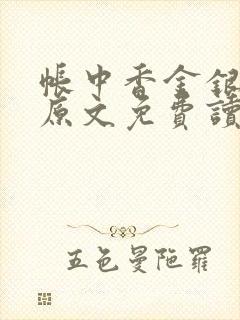 帳中香金銀
原文免費讀
五色曼陁羅